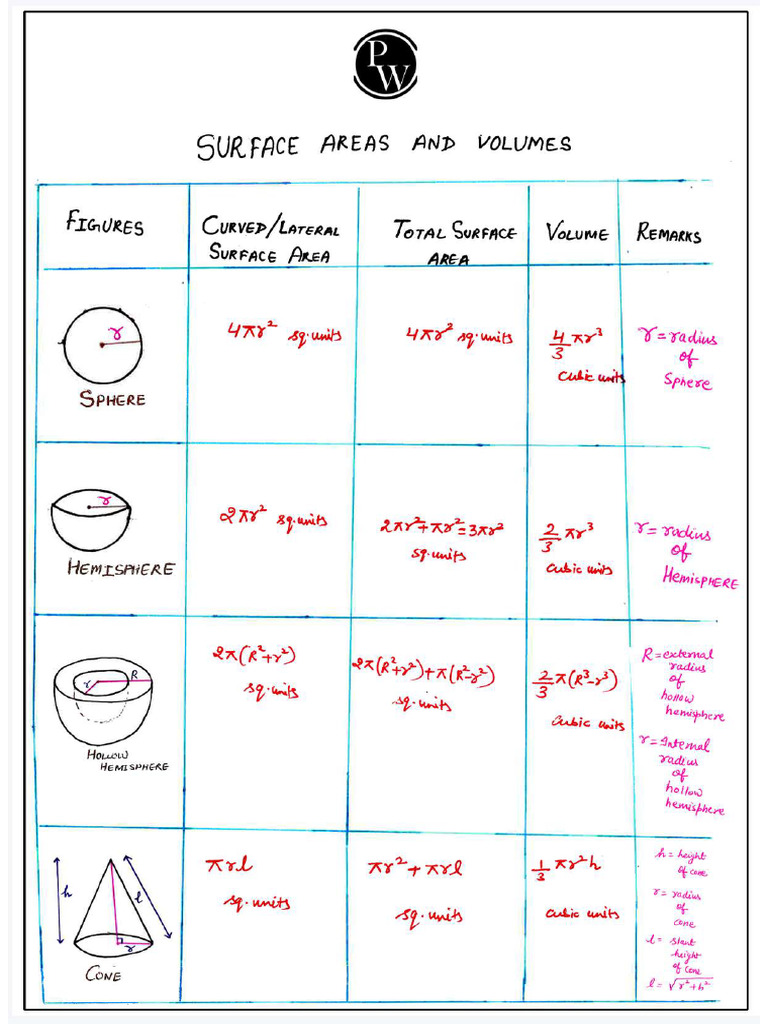 P
W
SURFACE AREAS AND VOLUMES
FIGURES
CURVED/LATERAL
SURFACE AREA
TOTAL SURFACE
AREA
VOLUME
REMARKS
r
SPHERE
4πr² sq.units
4πr² sq.units
4/3 πr³
cubic units
r = radius
of
Sphere
r
HEMISPHERE
2πr² sq.units
2πr²+πr²=3πr²
sq.units
2/3 πr³
cubic units
r = radius
of
Hemisphere
r R
HOLLOW
HEMISPHERE
2π(R²+r²)
sq.units
2π(R²+r²)+π(R²-r²)
sq.units
2/3 π(R³-r³)
cubic units
R = external
radius
of
hollow
hemisphere
r = Internal
radius
of
hollow
hemisphere
h l
r
CONE
πrl
sq.units
πr² + πrl
sq.units
1/3 πr²h
cubic units
h = height
of cone
r = radius
of
cone
l = slant
height
of cone
l = √r²+h²